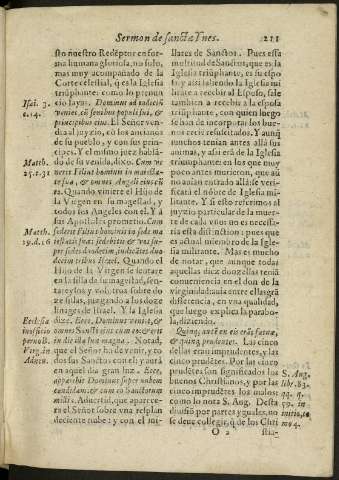 Sermon de sancta Ynes. 211
sto nuestro Redẽptor en for-
ma humana gloriosa, no solo,
mas muy acompañado de la
Corte celestial, q̃ es la Iglesia
triũphante: como lo prenun-
Isai. 3. cio Isayas. Dominus ad iudicium
c.14. veniet cũ senibus populi sui, &
principibus eius. El Señor ven-
dra al juyzio, cõ los ancianos
de su pueblo, y con sus prin-
cipes. Y el mismo juez hablã-
Matth. do de su venida, dixo. Cum ve-
25.c.31 nerit Filius hominis in maiesta-
te sua, & omnes Angeli eius cũ
eo. Quando viniere el Hijo de
la Virgen en su magestad, y
todos los Angeles con el. Y à
sus Apostoles prometio. Cum
Matth. sederit Filius hominis in sede ma
19.d.16 iestatis suæ: sedebitis & vos su-
per sedes duodecim, iudicãtes duo
decim tribus Israel. Quando el
Hijo de la Virgen se sentare
en la silla de su magestad, sen-
tareys los y vosotros sobre do
ze sillas, juzgando a los doze
linages de Israel. Y la Iglesia
Ecclesia dize. Ecce, Dominus veniet, &
in officio omnes Sancti eius cum eo: & erit
in die illa lux magna. Notad,
que el Señor ha de venir, y to
Adven. dos sus Sanctos con el: y aura
en aquel dia gran luz. Ecce,
apparebit Dominus super nubem
candidam: & cum eo Sanctorum
millia. Aduertid, que aparece-
ra el Señor sobre vna resplan
deciente nube: y con el mi-
llares de Sanctos. Pues esta
multitud de Sanctos, que es la
Iglesia triũphante, es su espo
sa: y assi saliendo la Iglesia mi
litante a recebir al esposo, sale
tambien a recebir a la esposa
triumphante, con quien luego
se han de incorporar los bue-
nos recien resuscitados. Y aunq̃
muchos tenian antes allà sus
animas, y assi era de la Iglesia
triumphante: en los que muy
poco antes murieron, que aũ
no auian entrado allà: se veri-
ficarà el nõbre de Iglesia mi-
litante. Y si esto referimos al
juyzio particular de la muer-
te de cada vno: no es necessa-
ria esta distinction: pues que
es actual miembro de la Igle-
sia militante. Mas es mucho
de notar, que aunque todas
aquellas diez donzellas teniã
conueniencia en el don de la
virginidad: auia entre ellas grã
differencia, en vna qualidad,
que luego explica la parabo-
la, diziendo.
Quinq; autẽ ex eis erãt fatuæ,
& quinq; prudentes. Las cinco
dellas eran imprudentes, y las
cinco prudẽtes. Por las cinco
prudẽtes son significados los S. Aug.
buenos Christianos, y por las libr. 83.
cinco imprudẽtes los malos: qq. q.
como lo nota S. Aug. Desta 59. in
diuisiõ por partes yguales, no initio, to
se deue collegir, q̃ de los Chri mo 4.
O 2 stia-